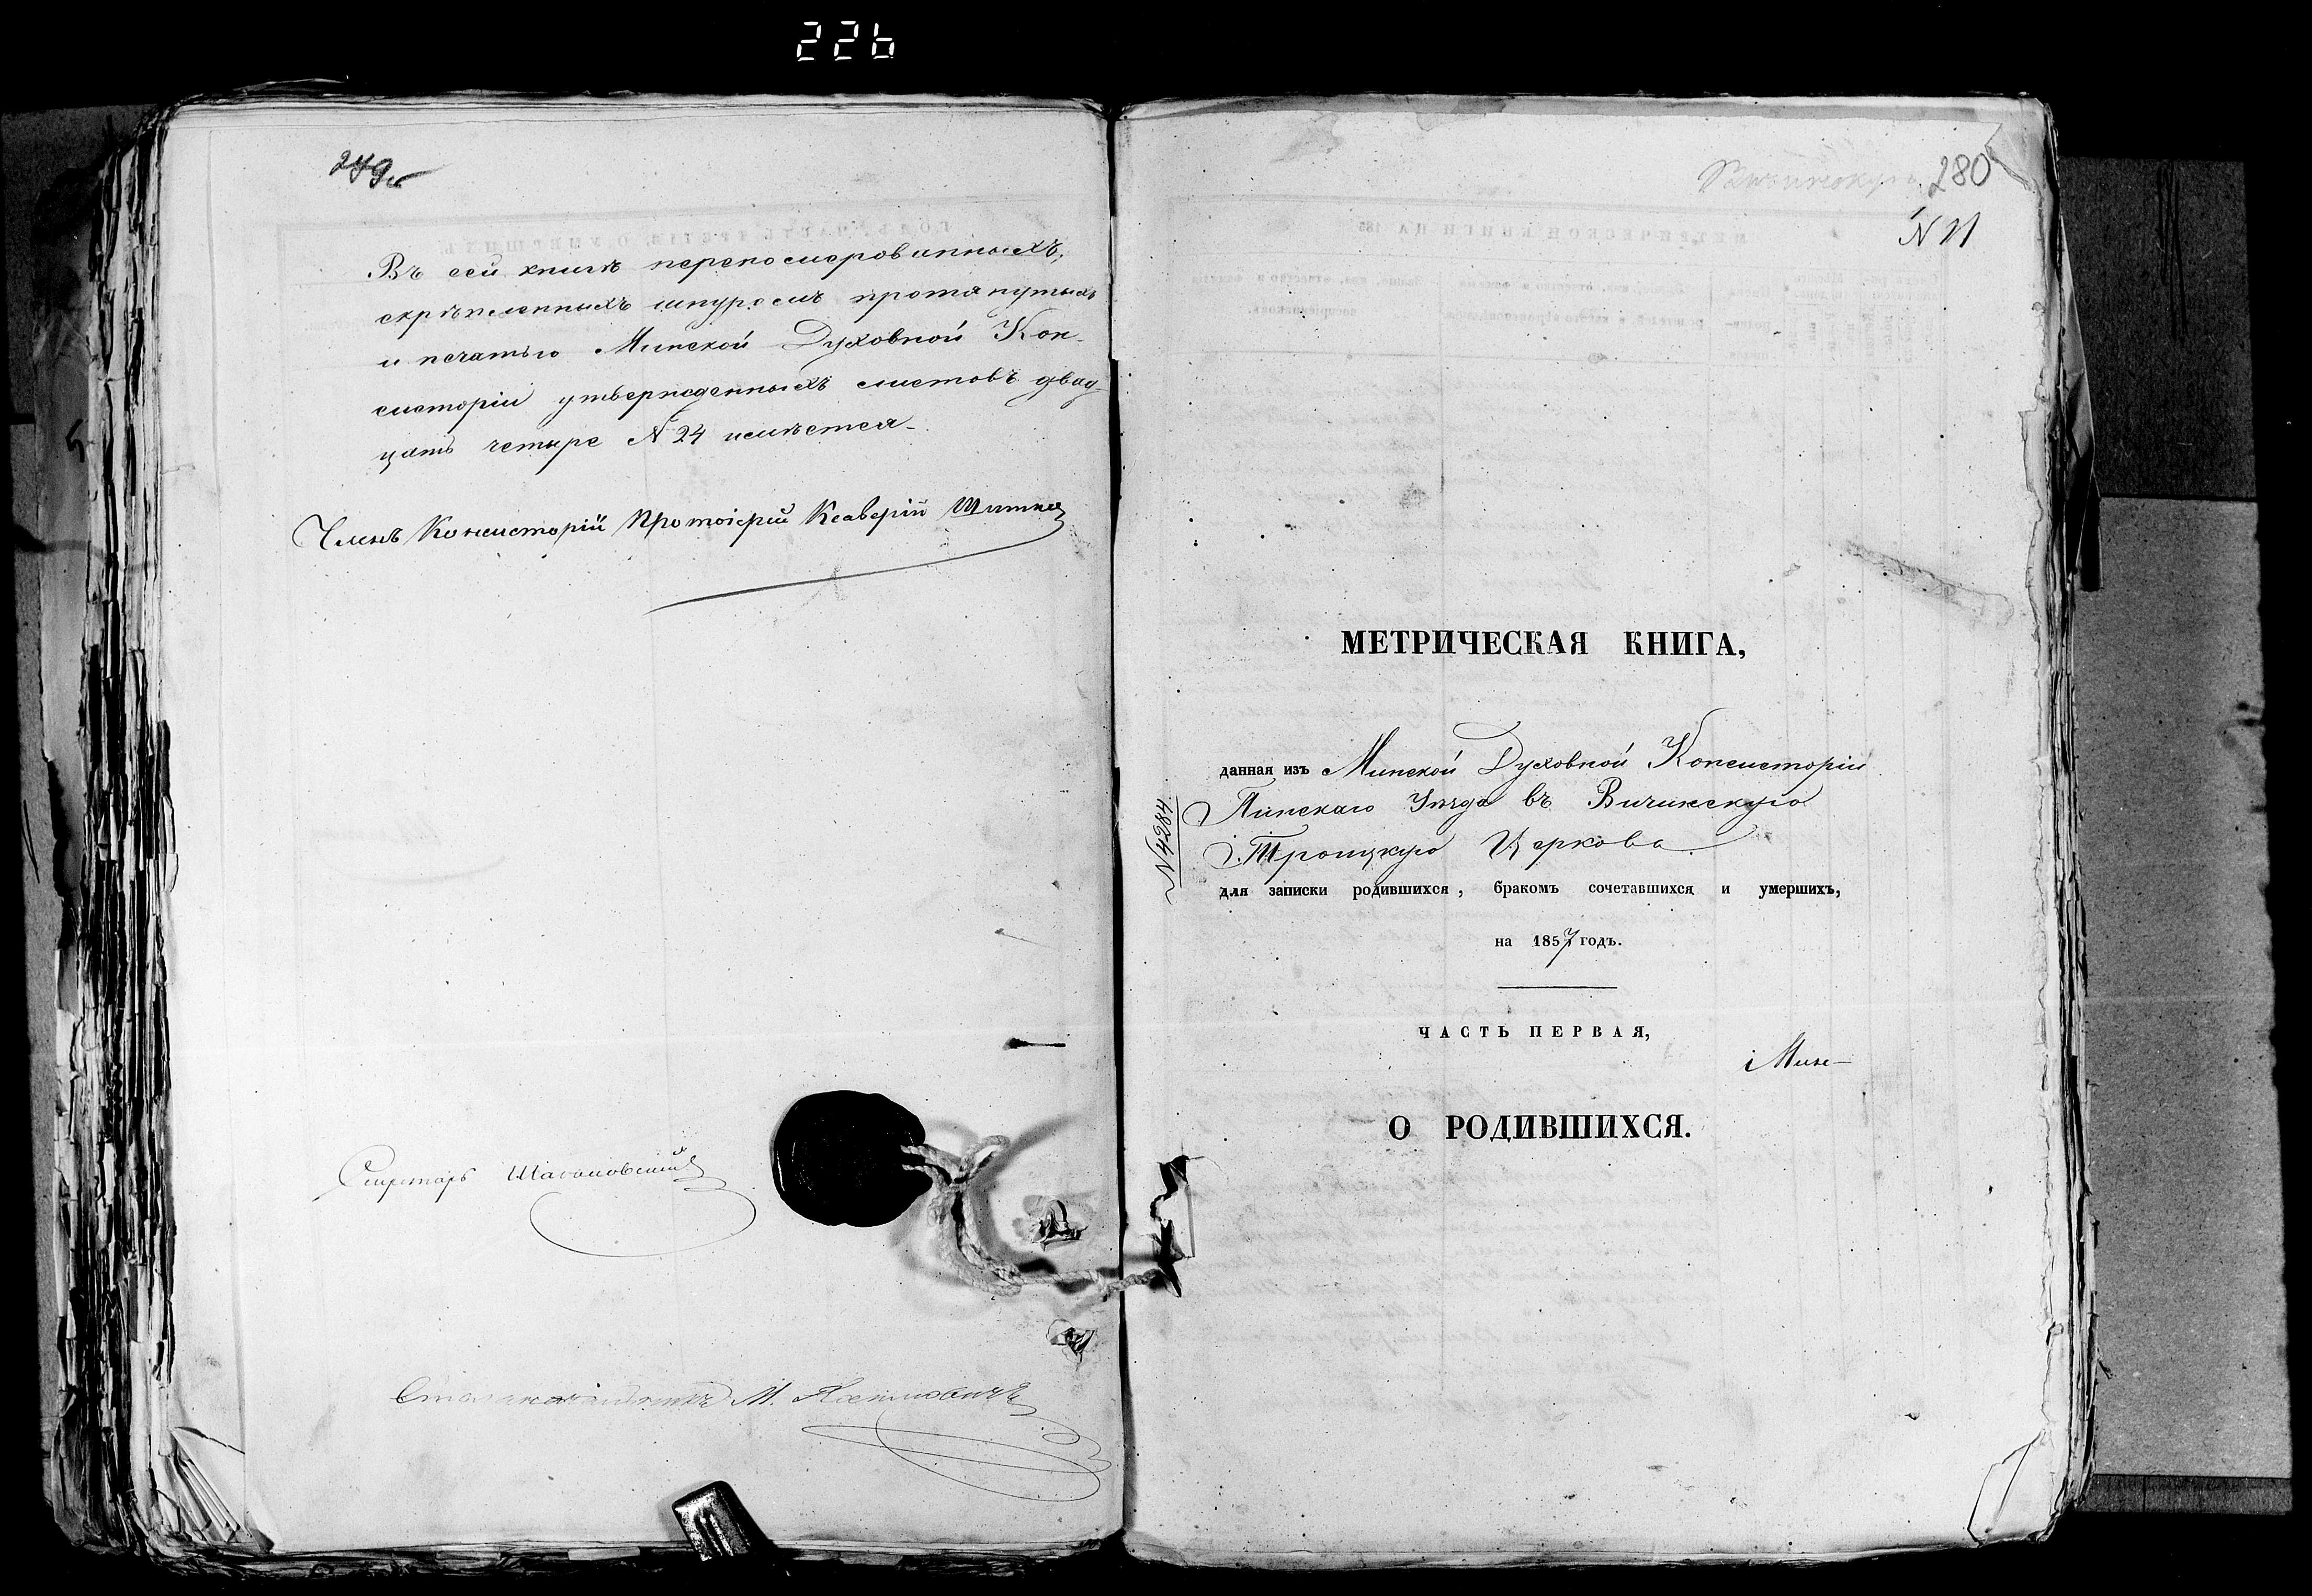 226
279
Въ сей книгѣ перенумерованныхъ,
скрѣпленныхъ шнуромъ протянутыхъ
и печатью Минской Духовной Кон-
систоріи утвержденныхъ листовъ двад-
цать четыре № 24 имѣется
Членъ Консисторіи Протоіерей Ксаверій
Секретарь
М.
280
N 11
МЕТРИЧЕСКАЯ КНИГА,
данная изъ Минской Духовной Консисторіи
Пинскаго Уѣзда въ Вичинскую
Троицкую Церковь
N 4284
для записки родившихся, бракомъ сочетавшихся и умершихъ,
на 1857 годъ.
ЧАСТЬ ПЕРВАЯ,
Мин-
О РОДИВШИХСЯ.